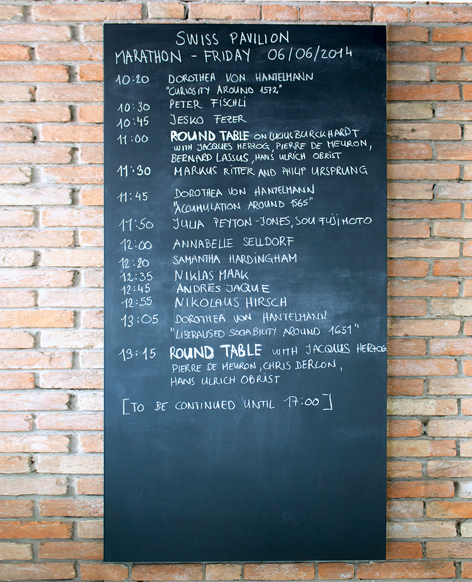 SWISS PAVILION
MARATHON - FRIDAY 06/06/2014
10:20 DOROTHEA VON HANTELMANN
"CURIOSITY AROUND 1572"
10:30 PETER FISCHLI
10:45 JESKO FEZER
11:00 ROUND TABLE ON LUCIUS BURCKHARDT
WITH JACQUES HERZOG, PIERRE DE MEURON,
BERNARD LASSUS, HANS ULRICH OBRIST
11:30 MARKUS RITTER AND PHILIP URSPRUNG
11:45 DOROTHEA VON HANTELMANN
"ACCUMULATION AROUND 1565"
11:50 JULIA PEYTON-JONES, SOU FUJIMOTO
12:00 ANNABELLE SELLDORF
12:20 SAMANTHA HARDINGHAM
12:35 NIKLAS MAAK
12:45 ANDRÉS JAQUE
12:55 NIKOLAUS HIRSCH
13:05 DOROTHEA VON HANTELMANN
"LIBERALISED SOCIABILITY AROUND 1651"
13:15 ROUND TABLE WITH JACQUES HERZOG
PIERRE DE MEURON, CHRIS DERCON,
HANS ULRICH OBRIST
[TO BE CONTINUED UNTIL 17:00]